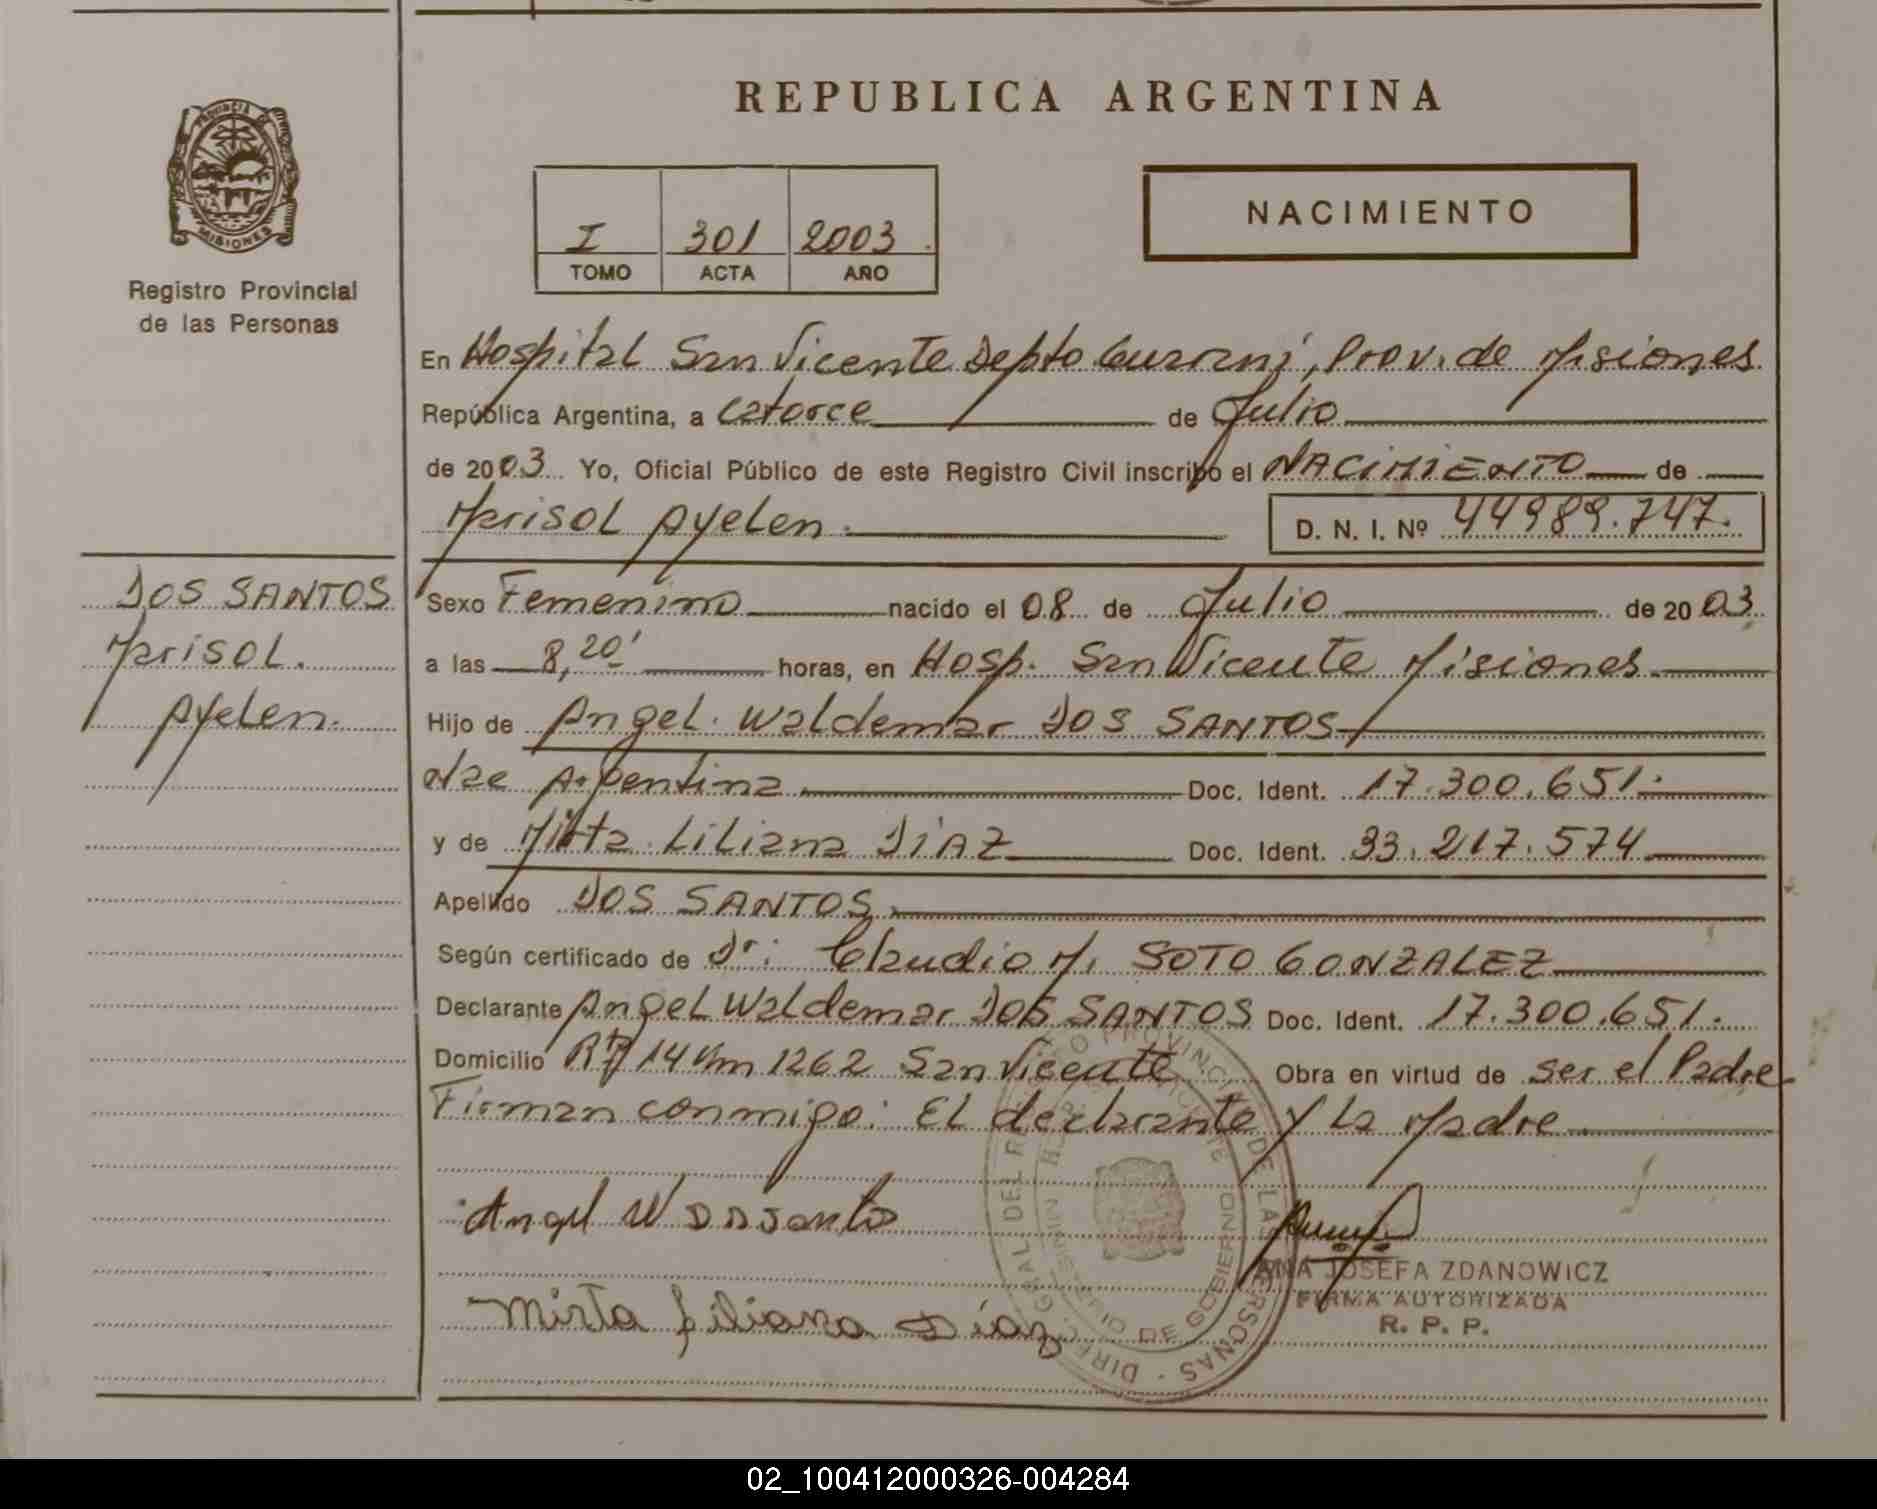 REPUBLICA ARGENTINA
PROVINCIA DE
MISIONES
Registro Provincial
de las Personas
I 301 2003
TOMO ACTA AÑO
NACIMIENTO
En Hospital San Vicente Depto Guarani, Prov. de Misiones
República Argentina, a Catorce de Julio
de 2003 Yo, Oficial Público de este Registro Civil inscribo el NACIMIENTO de
Marisol Ayelen. D. N. I. Nº 44989.747.
DOS SANTOS
Marisol.
Ayelen.
Sexo Femenino nacido el 08 de Julio de 2003
a las 8,20' horas, en Hosp. San Vicente Misiones
Hijo de Angel Waldemar DOS SANTOS
Nac Argentina Doc. Ident. 17.300.651.
y de Mirta Liliana DIAZ Doc. Ident. 33.217.574
Apellido DOS SANTOS
Según certificado de Dr: Claudio M. SOTO GONZALEZ
Declarante Angel Waldemar DOS SANTOS Doc. Ident. 17.300.651.
Domicilio 14 Km 1262 San Vicente Obra en virtud de ser el Padre
Firman conmigo: El declarante y La Madre
Angel W
Mirta Liliana Díaz
ANA JOSEFA ZDANOWICZ
FIRMA AUTORIZADA
R. P. P.
02_100412000326-004284